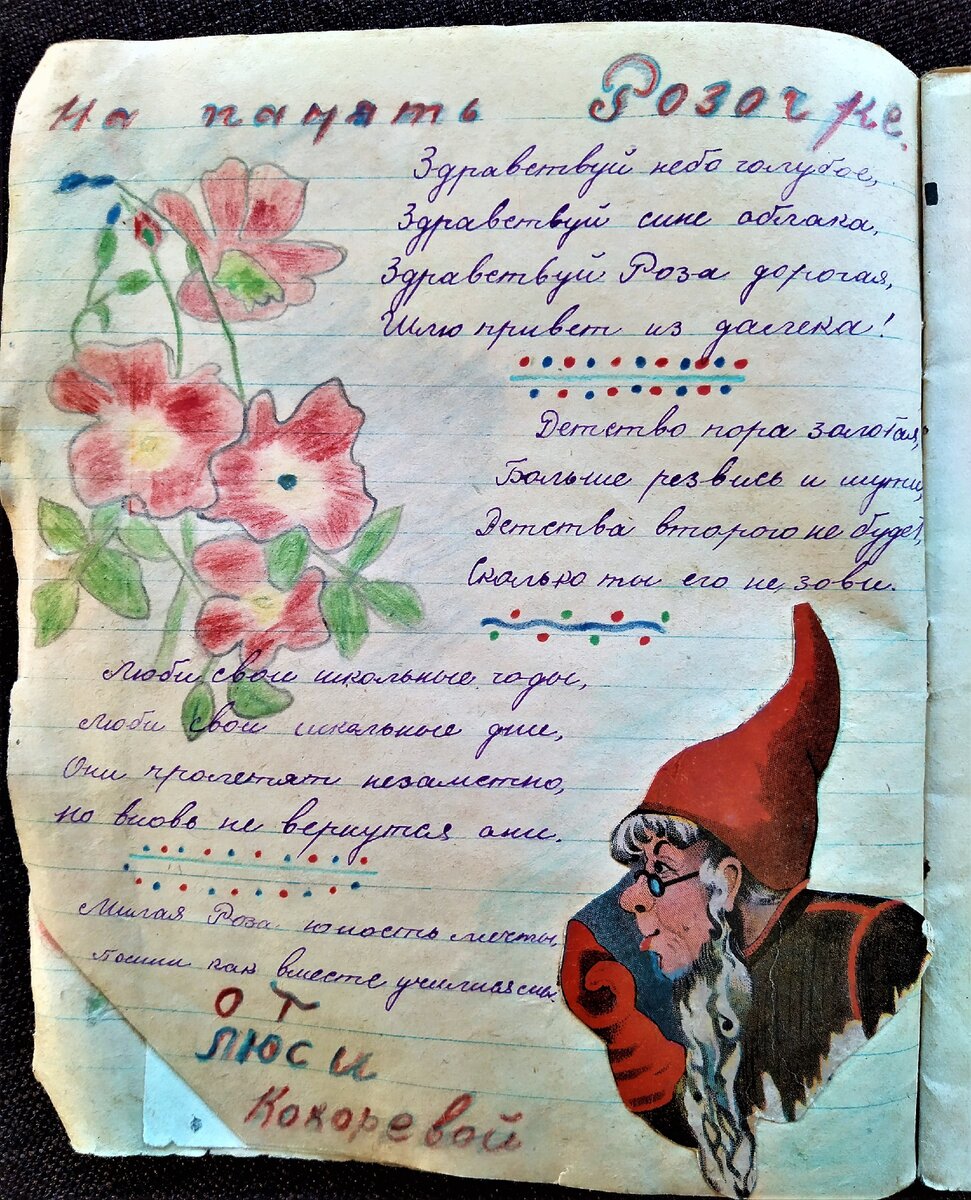 На память Розочке.
Здравствуй небо голубое,
Здравствуй сине облака,
Здравствуй Роза дорогая,
Шлю привет из далека!
Детство пора золотая,
Больше резвись и шути,
Детства второго не будет,
Сколько ты его не зови.
Люби свои школьные годы,
Люби свои школьные дни,
Они пролетят незаметно,
но вновь не вернутся они.
Милая Роза юность мечты,
Помни как вместе учились мы.
от
Люси
Кокоревой